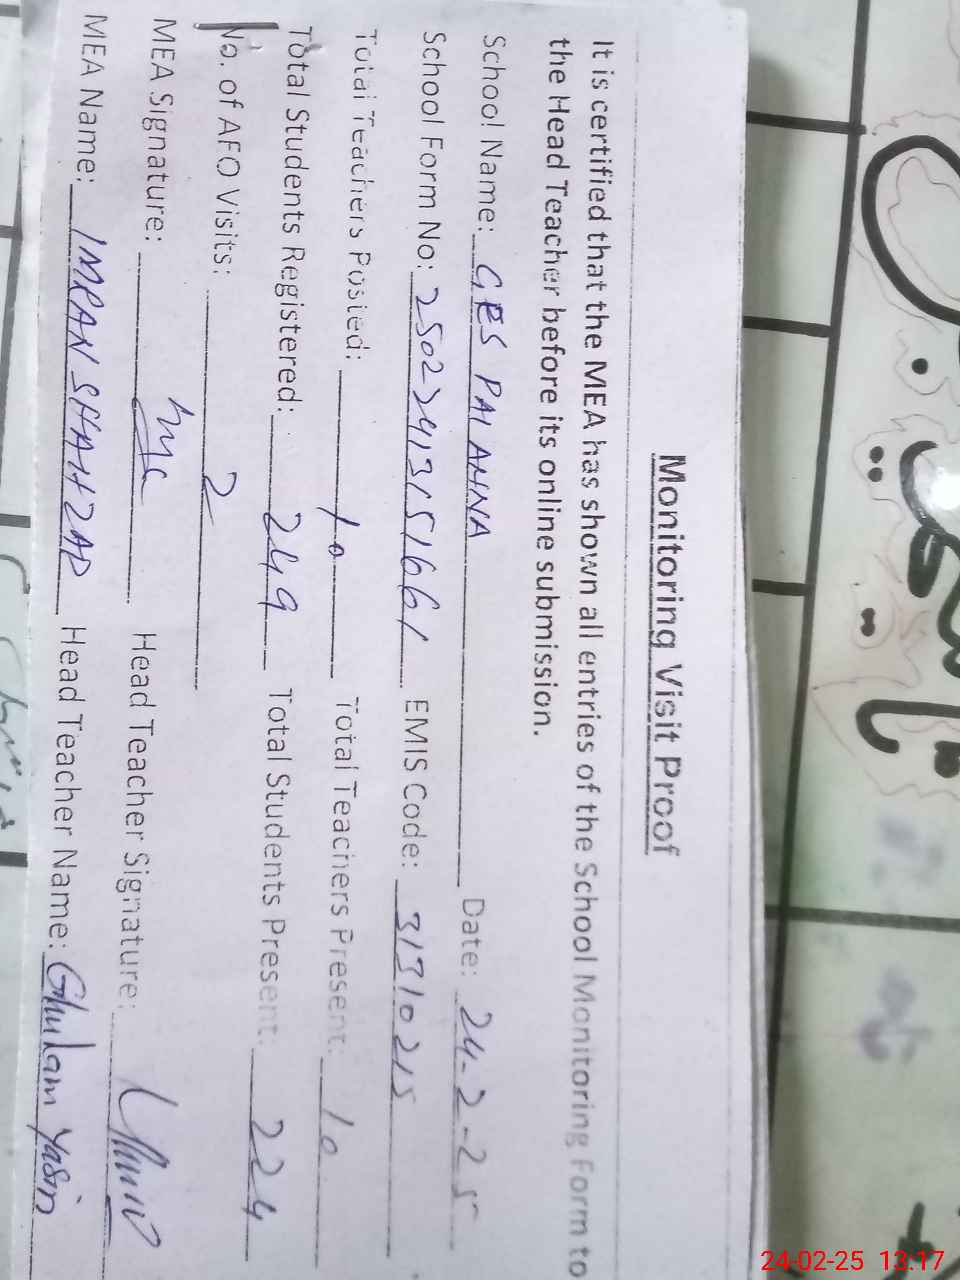 Monitoring Visit Proof
It is certified that the MEA has shown all entries of the School Monitoring Form to
the Head Teacher before its online submission.
School Name: GES PAI AHNA Date: 24-2-25
School Form No: 25022413151661 EMIS Code: 31310215
Total Teachers Posted: 10 Total Teachers Present: 10
Total Students Registered: 249 Total Students Present: 224
No. of AFO Visits: 2
MEA Signature: Head Teacher Signature:
MEA Name: IMRAN SHAHZAD Head Teacher Name: Ghulam Yasin
24-02-25 13:17